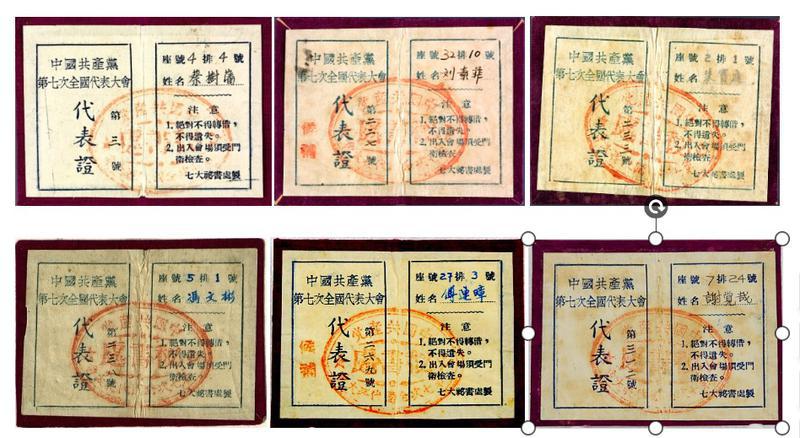 中國共產黨
第七次全國代表大會
代表證
第三號
座號4排4號
姓名 蔡樹藩
注意
1. 絕對不得轉借，
不得遺失。
2. 出入會場須受門
衛檢查。
七大祕書處製
中國共產黨
第七次全國代表大會
代表證
第二二七號
候補
座號32排10號
姓名 刘
注意
1. 絕對不得轉借，
不得遺失。
2. 出入會場須受門
衛檢查。
七大祕書處製
中國共產黨
第七次全國代表大會
代表證
第二三三號
座號2排1號
姓名
注意
1. 絕對不得轉借，
不得遺失。
2. 出入會場須受門
衛檢查。
七大祕書處製
中國共產黨
第七次全國代表大會
代表證
第二三八號
座號5排1號
姓名 馮文彬
注意
1. 絕對不得轉借，
不得遺失。
2. 出入會場須受門
衛檢查。
七大祕書處製
中國共產黨
第七次全國代表大會
代表證
第二六九號
候補
座號27排3號
姓名 傅連暲
注意
1. 絕對不得轉借，
不得遺失。
2. 出入會場須受門
衛檢查。
七大祕書處製
中國共產黨
第七次全國代表大會
代表證
第三一二號
座號7排24號
姓名 謝覺哉
注意
1. 絕對不得轉借，
不得遺失。
2. 出入會場須受門
衛檢查。
七大祕書處製